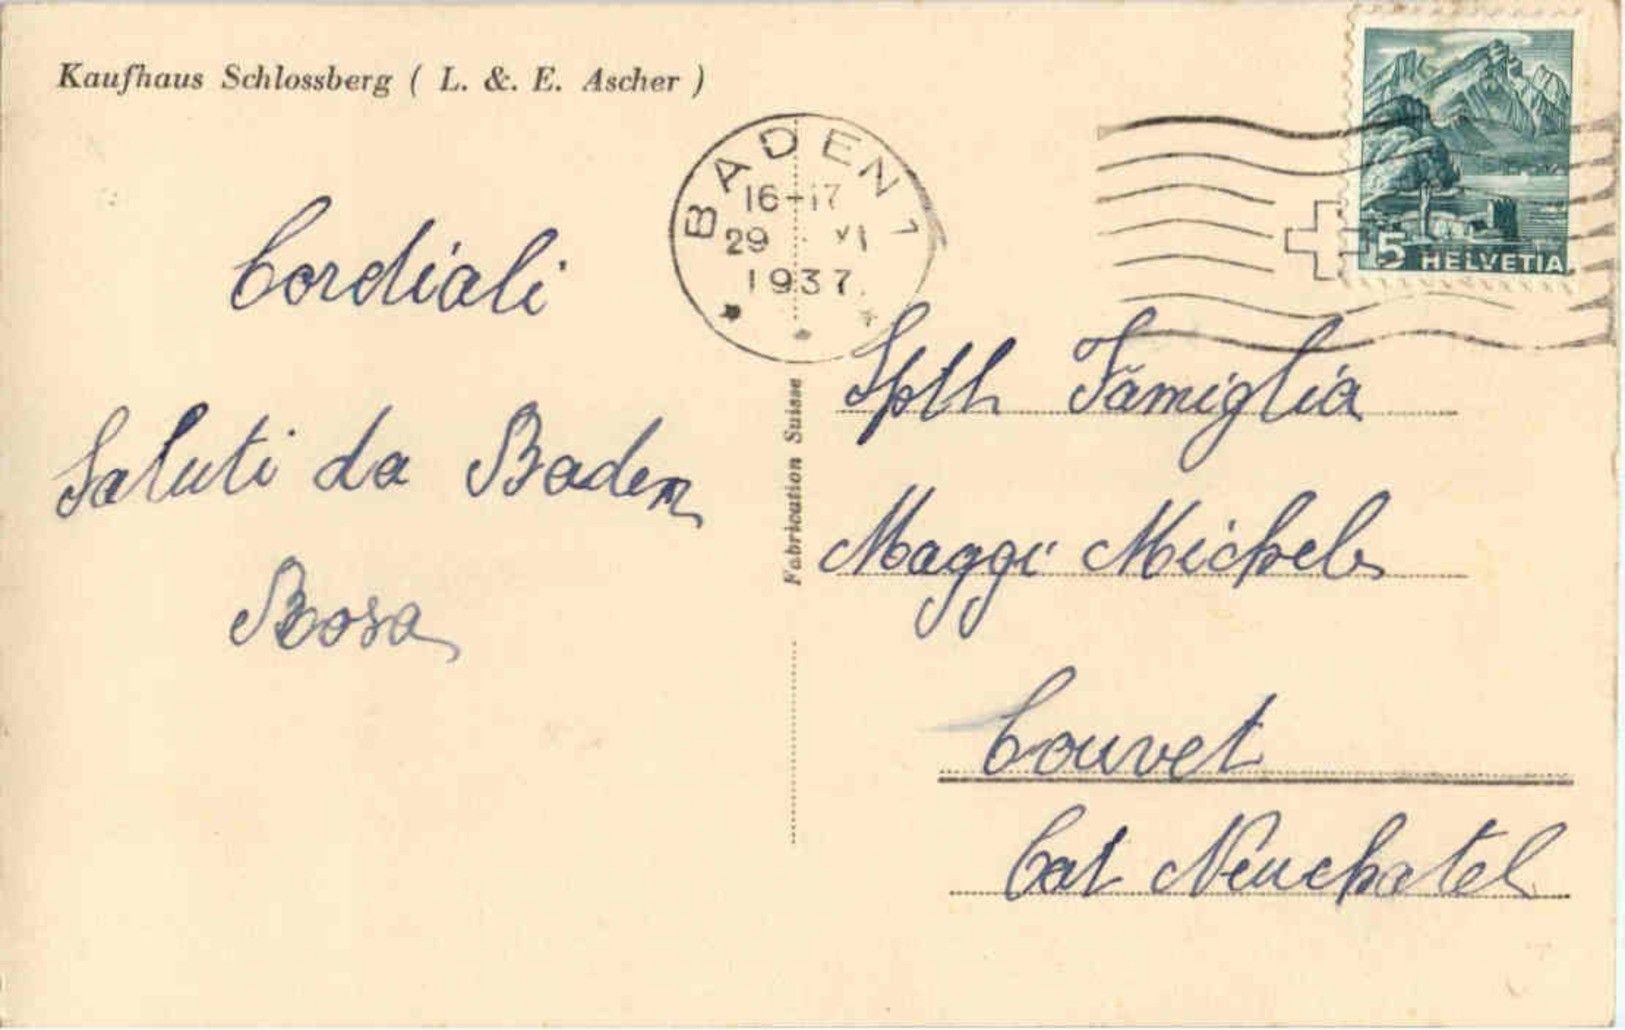 Kaufhaus Schlossberg ( L. &. E. Ascher )
BADEN 1
16-17
29 . VI
1937.
5 HELVETIA
Cordiali
Saluti da Baden
Rosa
Fabrication Suisse
Famiglia
Maggi Michele
Couvet
Cat Neuchatel